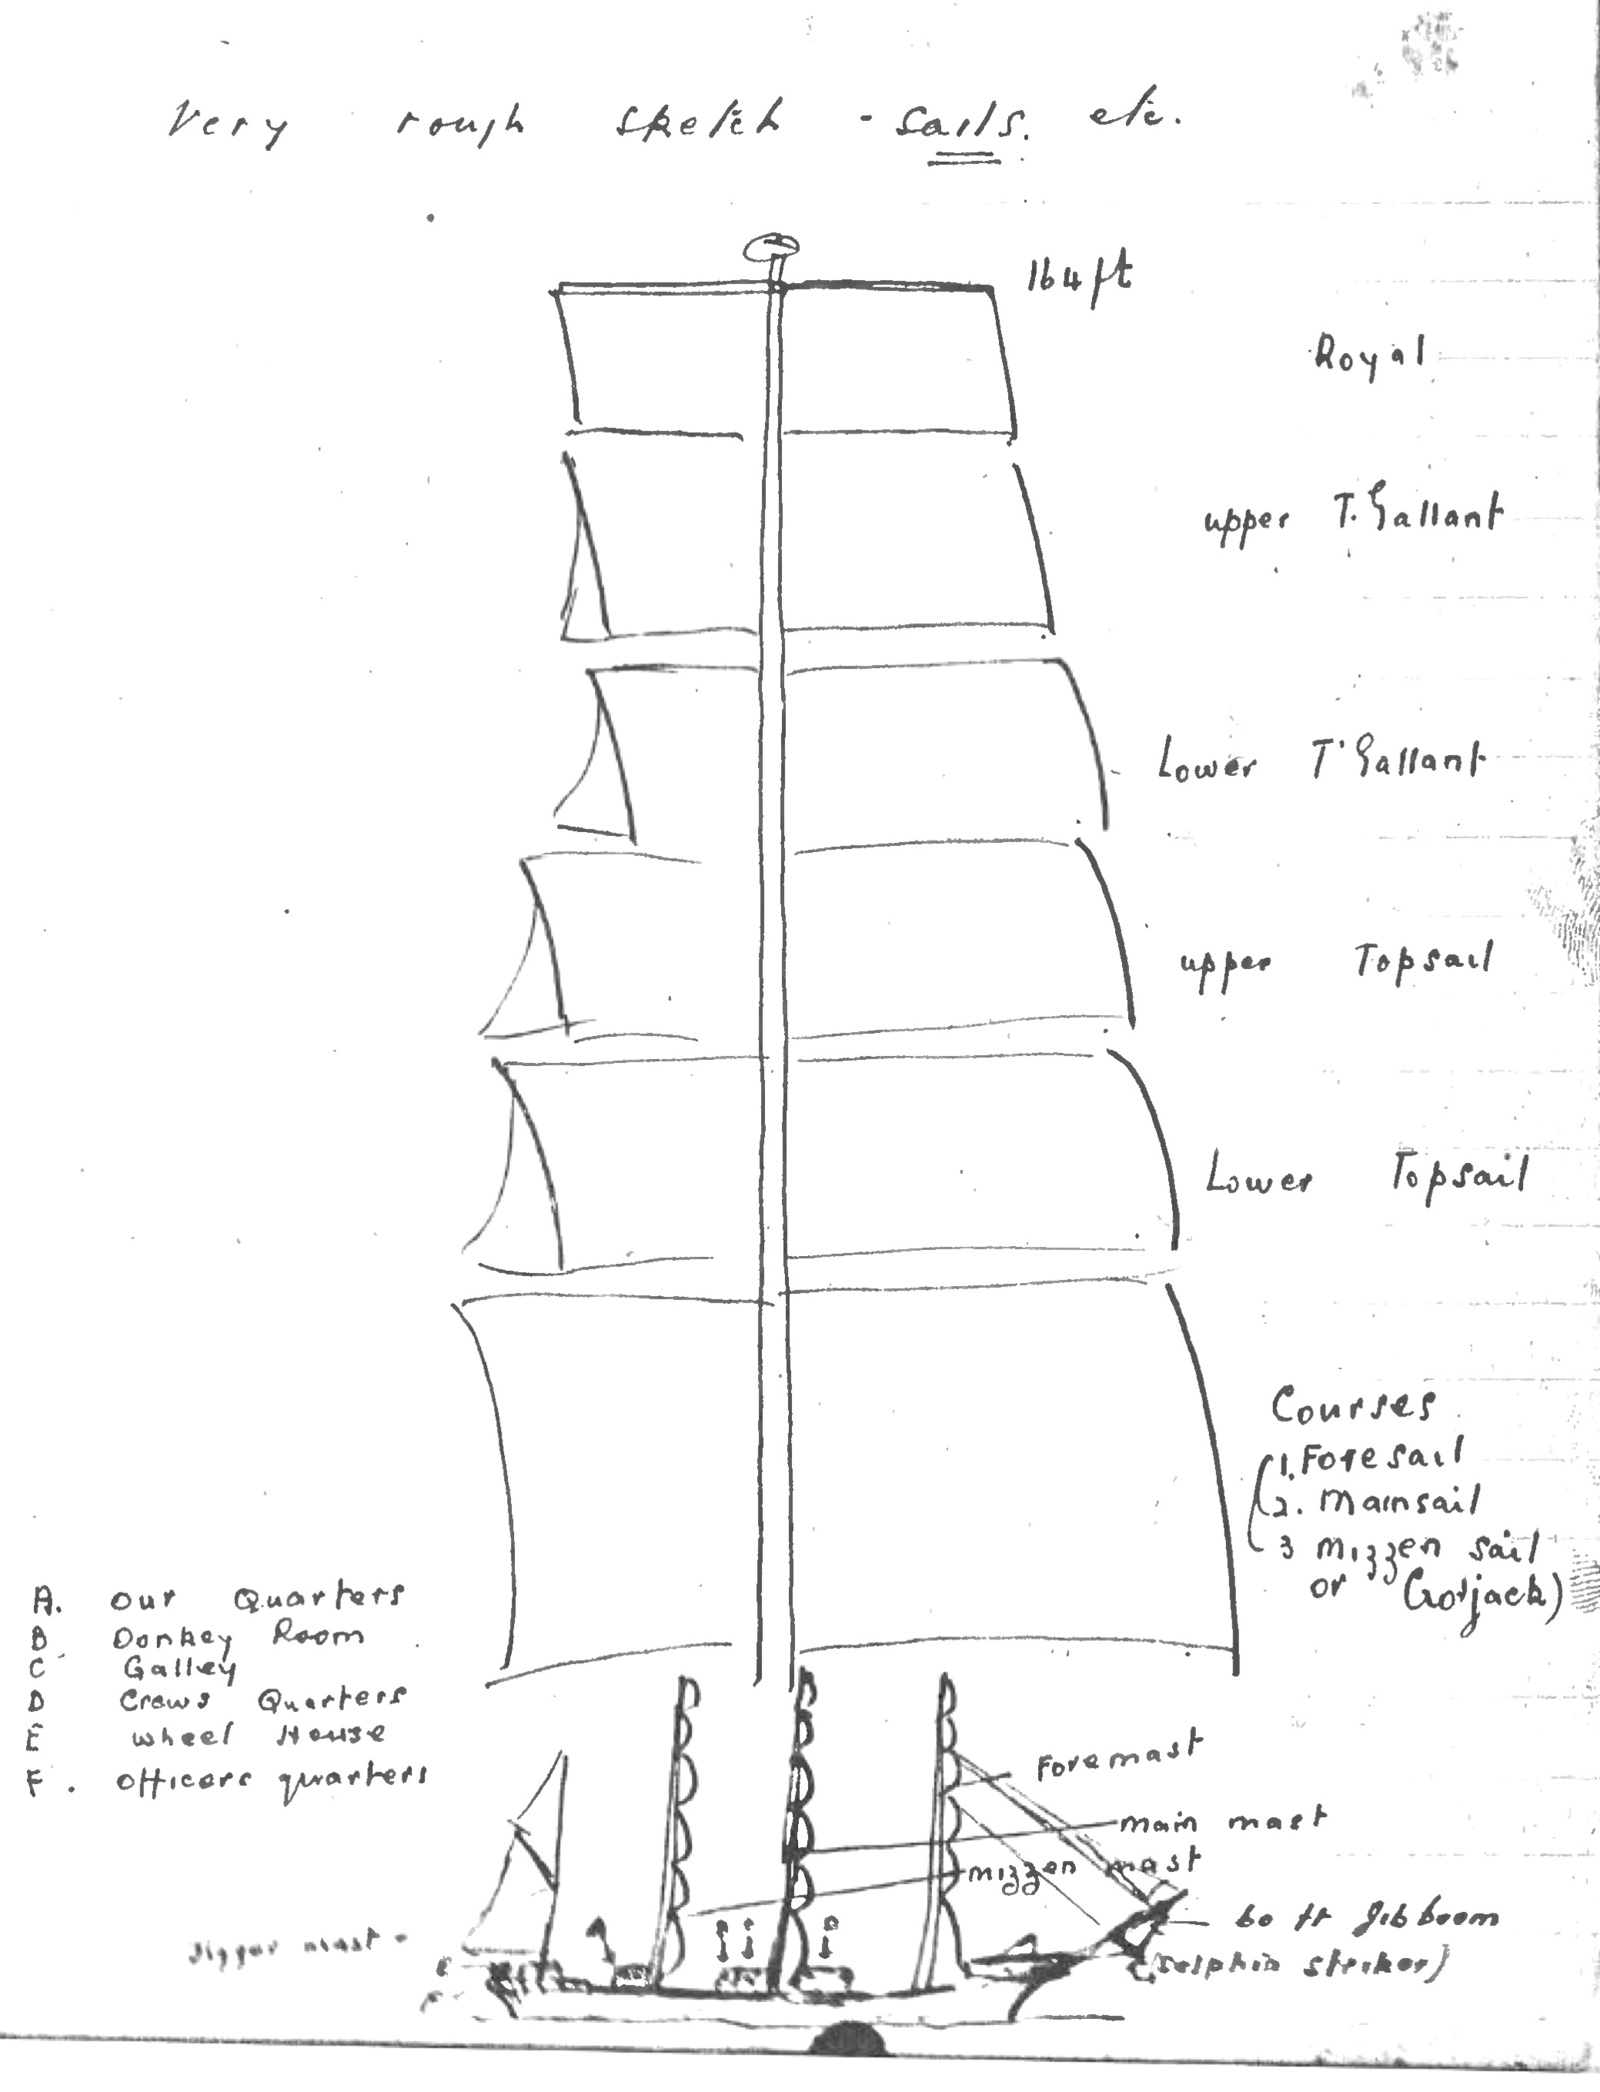 Very rough sketch - sails. etc.
164 ft
Royal
upper T. Gallant
Lower T' Gallant
upper Topsail
Lower Topsail
Courses
1. Foresail
2. Mainsail
3 mizzen sail
or Crojack)
A. Our Quarters
B Donkey Room
C Galley
D Crews Quarters
E Wheel House
F. Officers quarters
Foremast
main mast
mizzen mast
60 ft Jibboom
(Dolphin striker)
Jigger mast
E
F